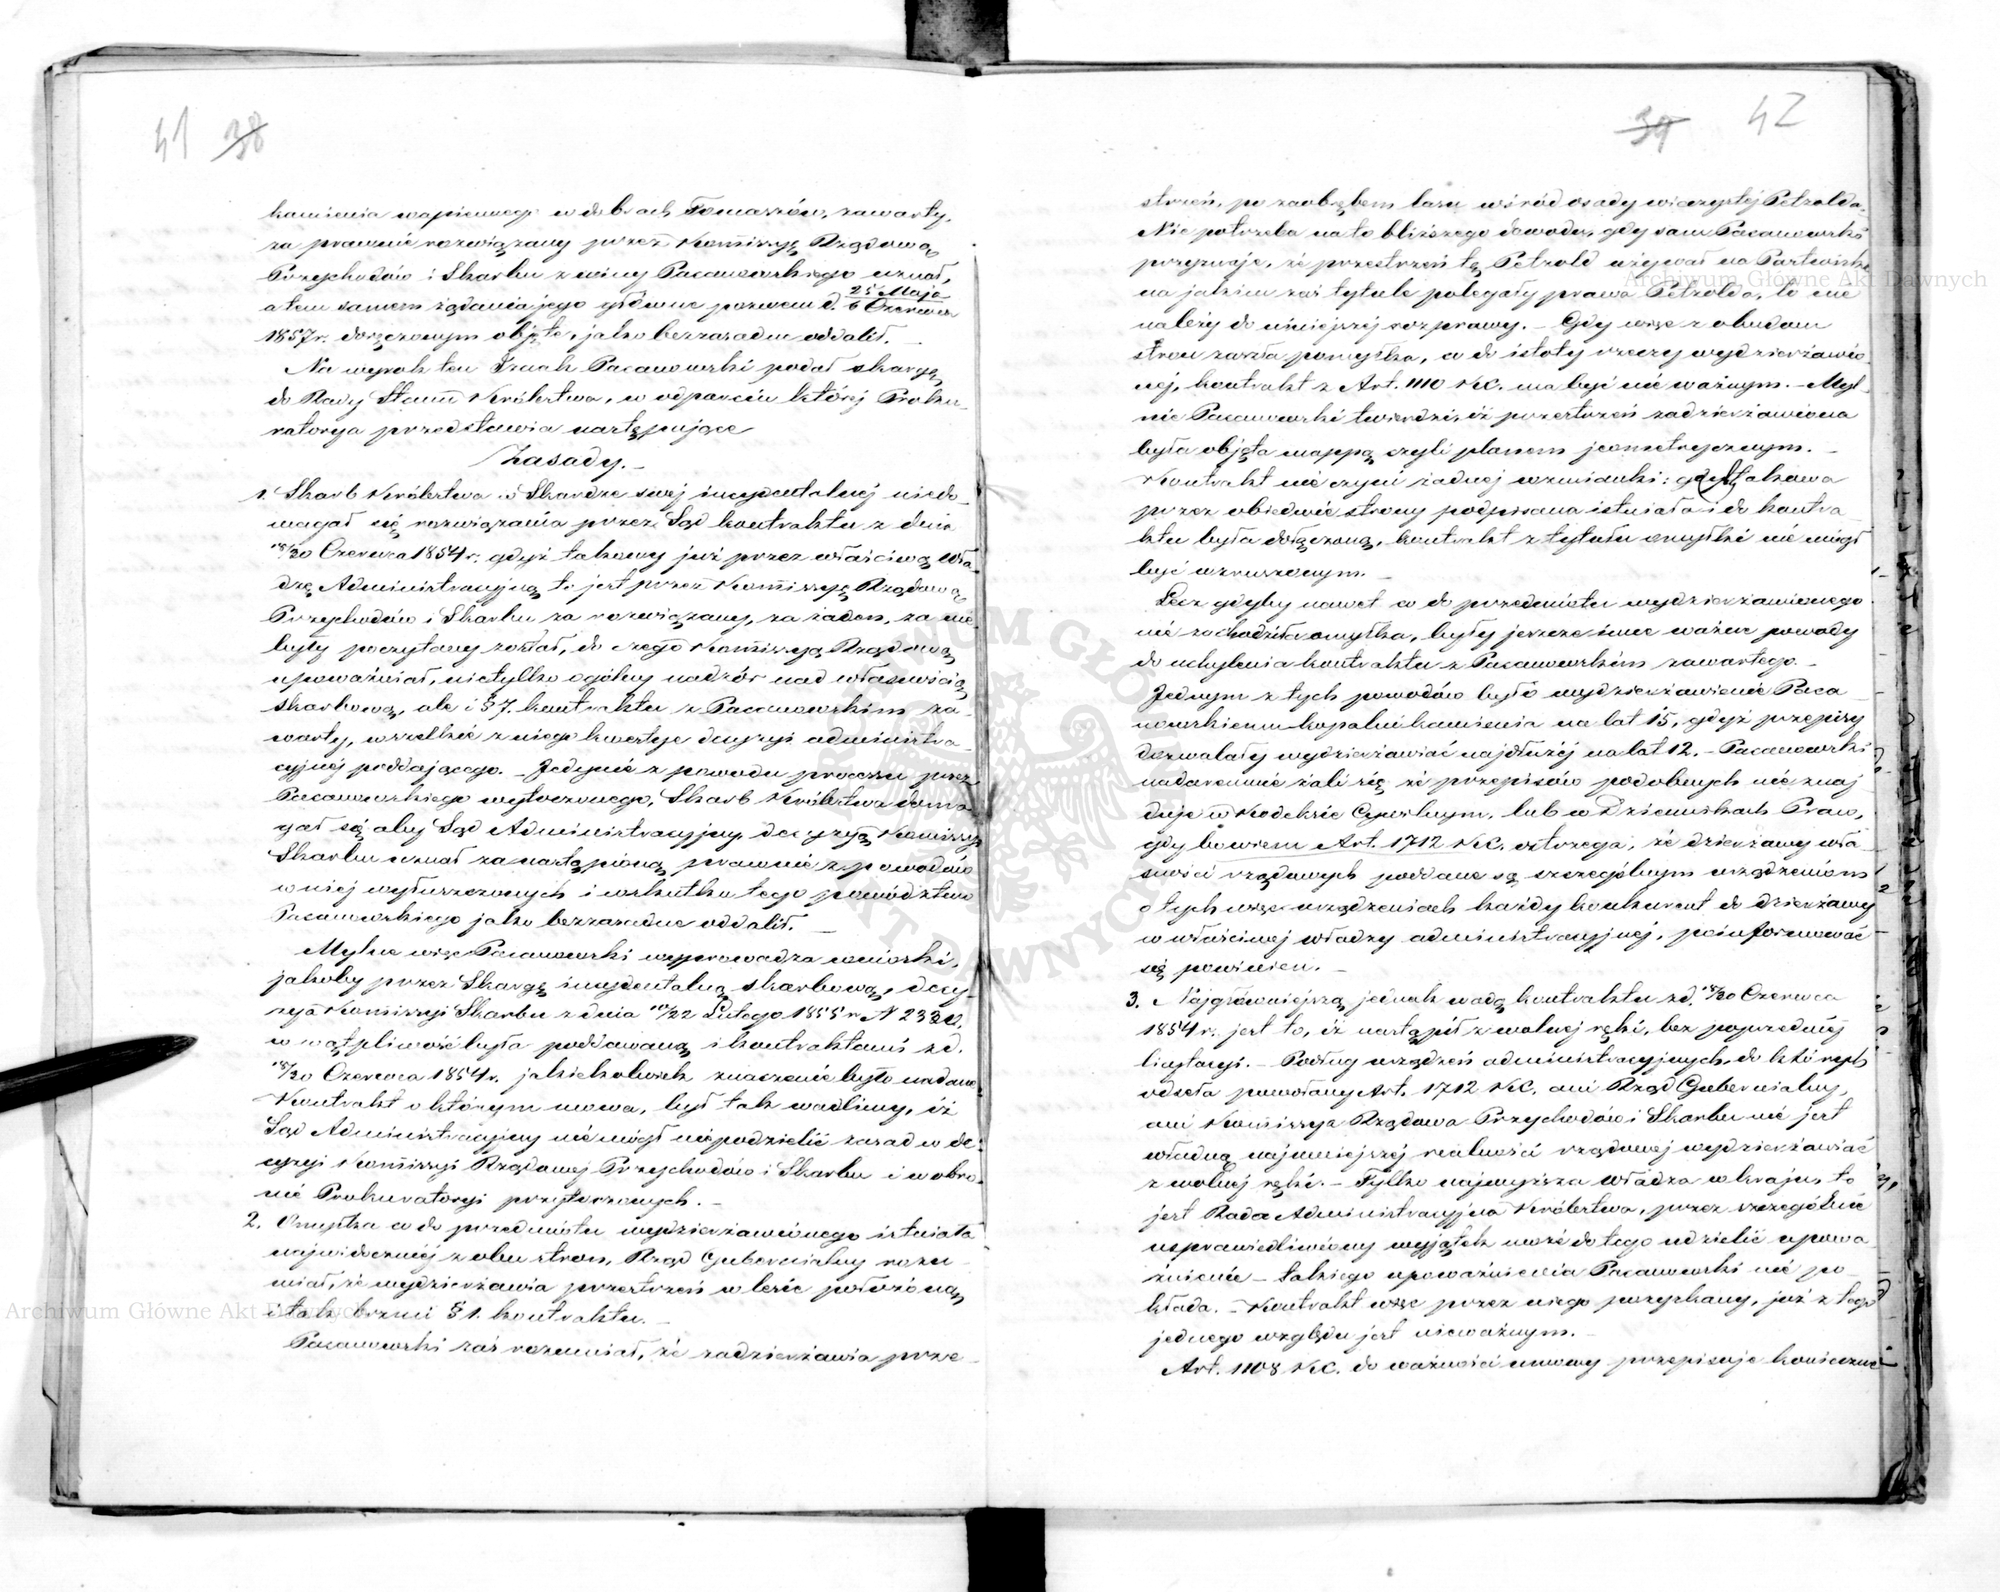 41 38
kamienia wapiennego w dobrach Tomaszów, zawarty,
za prawnie rozwiązany przez Kommissyę Rządową
Przychodów i Skarbu z winy Pacanowskiego uznał,
a tem samem żądania jego główne pozwem d. 25 Maja / 6 Czerwca
1857 r. doręczonym objęte, jako bezzasadne oddalił. _
Na wyrok ten Izaak Pacanowski podał skargę
do Rady Stanu Królestwa, w odparciu której Proku-
ratorya przedstawia następujące
Zasady. _
1. Skarb Królestwa w Skardze swej incydentalnej niedo-
magał się rozwiązania przez Sąd kontraktu z dnia
18/30 Czerwca 1854 r. gdyż takowy już przez właściwą wła-
dzę Administracyjną to jest przez Kommissyę Rządową
Przychodów i Skarbu za rozwiązany, za żaden, za nie
były poczytany został, do czego Kommissyą Rządową
upoważniał, nietylko ogólny nadzór nad własnością
skarbową, ale i § 7. kontraktu z Pacanowskim za-
warty, wszelkie z niego kwestye decyzyi administra-
cyjnej poddającego. _ Jedynie z powodu processu przez
Pacanowskiego wytoczonego, Skarb Królestwa doma-
gał się aby Sąd Administracyjny, decyzyą Kommissyi
Skarbu uznał za nastąpioną prawnie z powodów
w niej wyłuszczonych i wskutku tego powództwo
Pacanowskiego jako bezzasadne oddalił. _
Mylne więc Pacanowski wyprowadza wnioski,
jakoby przez Skargę incydentalną skarbową, decy-
zya Kommissyi Skarbu z dnia 10/22 Lutego 1855 r. N
w wątpliwość była poddawaną i kontraktowi z d.
18/30 Czerwca 1854 r. jakiekolwiek znaczenie było nadane
Kontrakt o którym mowa, był tak wadliwy, iż
Sąd Administracyjny nie mógł niepodzielić zasad w de-
cyzyi Kommissyi Rządowej Przychodów i Skarbu i w obro-
nie Prokuratoryi przytoczonych. _
2. Omyłka co do przedmiotu wydzierżawionego istniała
najwidoczniej z obu stron, Rząd Gubernialny rozu-
miał, że wydzierżawia przestrzeń w lesie położoną
i tak brzmi § 1. kontraktu. _
Pacanowski zaś rozumiał, że zadzierżawia prze-
39 42
strzeń, po zaobrębem lasu wśród osady wieczystej Petzolda.
Nie potrzeba na to bliższego dowodu, gdy sam Pacanowski
przyznaje, że przestrzeń tę Petzold używał na Pastwisko
na jakim zaś tytule polegały prawa Petzolda, to nie
należy do niniejszej rozprawy. _ Gdy więc z obudwu
stron zaszła pomyłka, co do istoty rzeczy wydzierżawio-
nej, kontrakt z Art. 1110 K.C. ma być nie ważnym. _ Myl-
nie Pacanowski twierdzi, iż przestrzeń zadzierżawiona
była objęta mappą czyli planem jeometrycznym. _
Kontrakt nie czyni żadnej wzmianki: gdyby takowa
przez obiedwie strony podpisana istniała i do kontra-
ktu była dołączoną, kontrakt z tytułu omyłki nie mógł
być wzruszonym. _
Lecz gdyby nawet co do przedmiotu wydzierżawionego
nie zachodziła omyłka, były jeszcze inne ważne powody
do uchylenia kontraktu z Pacanowskim zawartego. _
Jednym z tych powodów było wydzierżawienie Paca-
nowskiemu kopalni kamienia na lat 15, gdyż przepisy
dozwalały wydzierżawiać najdłużej na lat 12. _ Pacanowski
nadaremnie żali się że przepisów podobnych nie znaj-
duje w Kodeksie Cywilnym, lub w Dziennikach Praw,
gdy bowiem Art. 1712 K.C. ostrzega, że dzierżawy wła-
sności rządowych poddane są szczególnym urządzeniom
o tych więc urządzeniach każdy konkurent do dzierżawy
w właściwej władzy administracyjnej, poinformować
się powinien. _
3. Najgłówniejszą jednak wadą kontraktu z d. 18/30 Czerwca
1854 r. jest to, iż nastąpił z wolnej ręki, bez poprzedniej
licytacyi. _ Podług urządzeń administracyjnych, do których
odseła powołany Art. 1712 K.C. ani Rząd Gubernialny,
ani Kommissya Rządowa Przychodów i Skarbu nie jest
władną najmniejszej realności rządowej wydzierżawiać
z wolnej ręki. _ Tylko najwyższa władza w kraju, to
jest Rada Administracyjna Królestwa, przez szczególnie
usprawiedliwiony wyjątek może do tego udzielić upowa-
żnienie _ takiego upoważnienia Pacanowski nie po-
kłada. _ Kontrakt więc przez niego pozyskany, już z tego
jednego względu jest nieważnym. _
Art. 1108 K.C. do ważności umowy przepisuje koniecznie